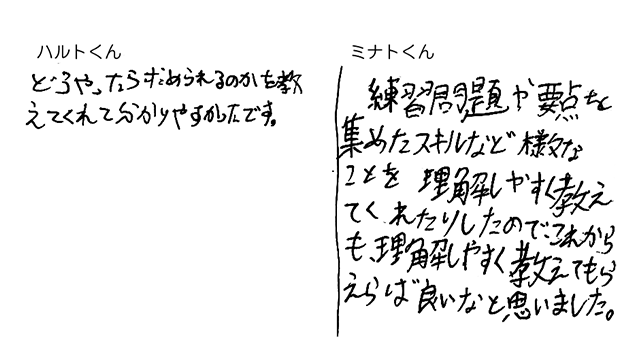 ハルトくん
どうやったらまとめられるのかを教
えてくれて分かりやすかたです。
ミナトくん
練習問題や要点を
集めたスキルなど様々な
ことを理解しやすく教え
てくれたりしたので、これから
も、理解しやすく教えてもら
えらば良いなと思いました。